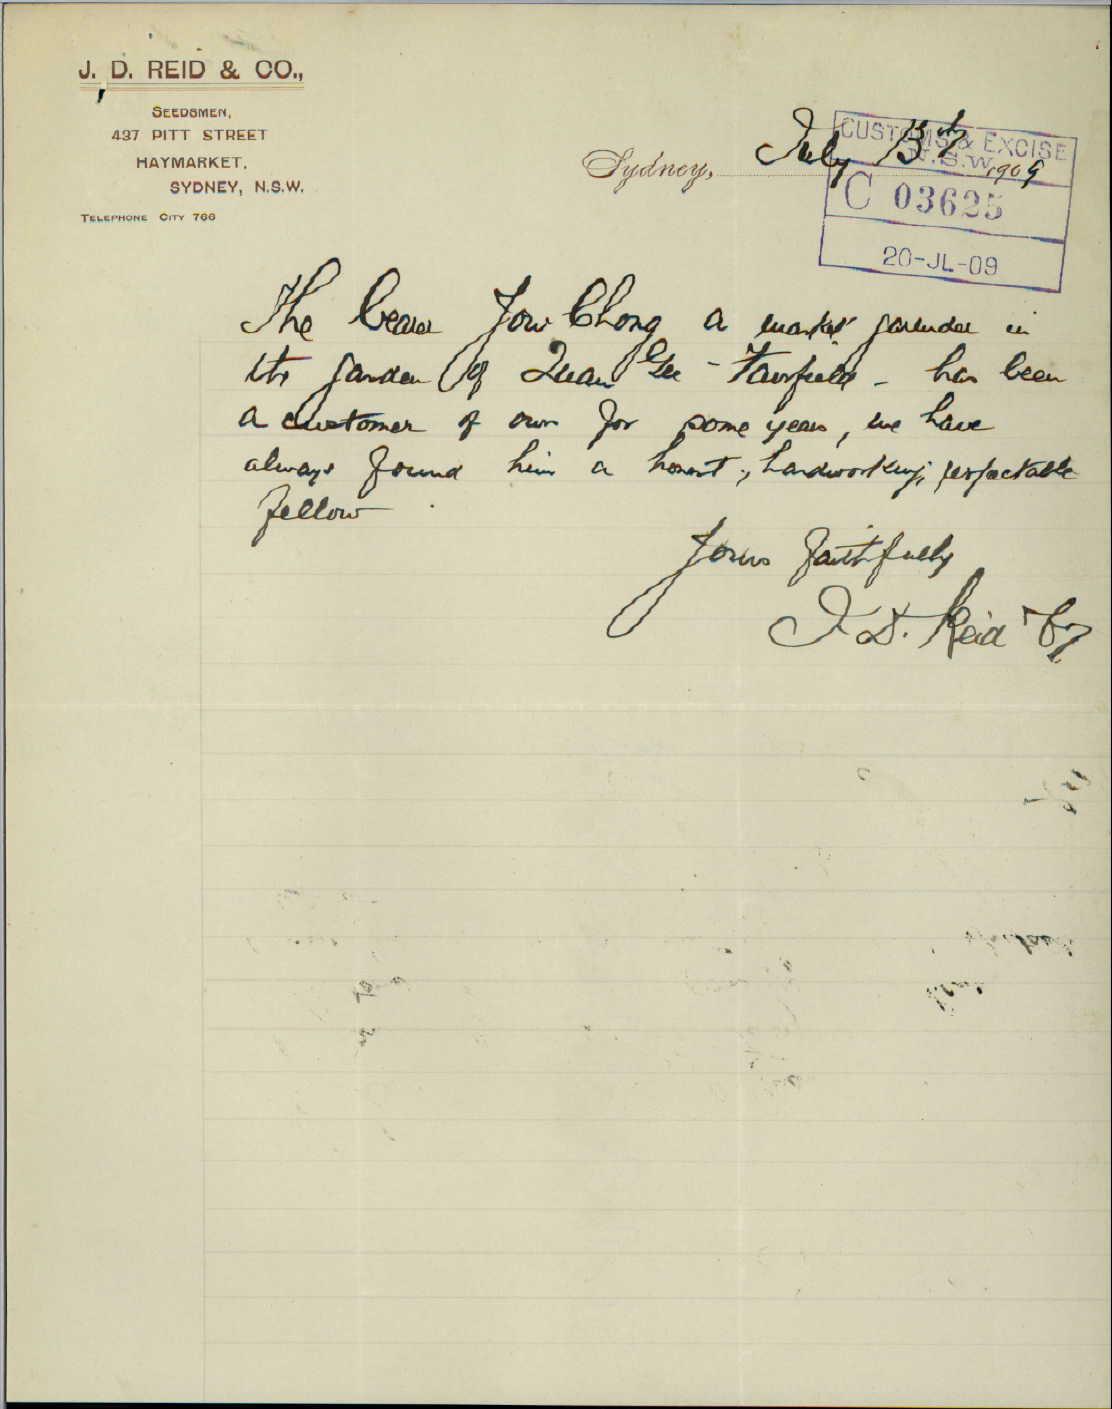 J. D. REID & CO.,
SEEDSMEN,
437 PITT STREET
HAYMARKET,
SYDNEY, N.S.W.
TELEPHONE CITY 766
Sydney, July 13th 1909
CUSTOMS & EXCISE
N.S.W.
C 03625
20-JL-09
The bearer Jow Chong a market gardener in
the garden of Quan Gee - Fairfield - has been
a customer of ours for some years, we have
always found him a honest, hardworking, respectable
fellow
Yours faithfully
J. D. Reid & Co